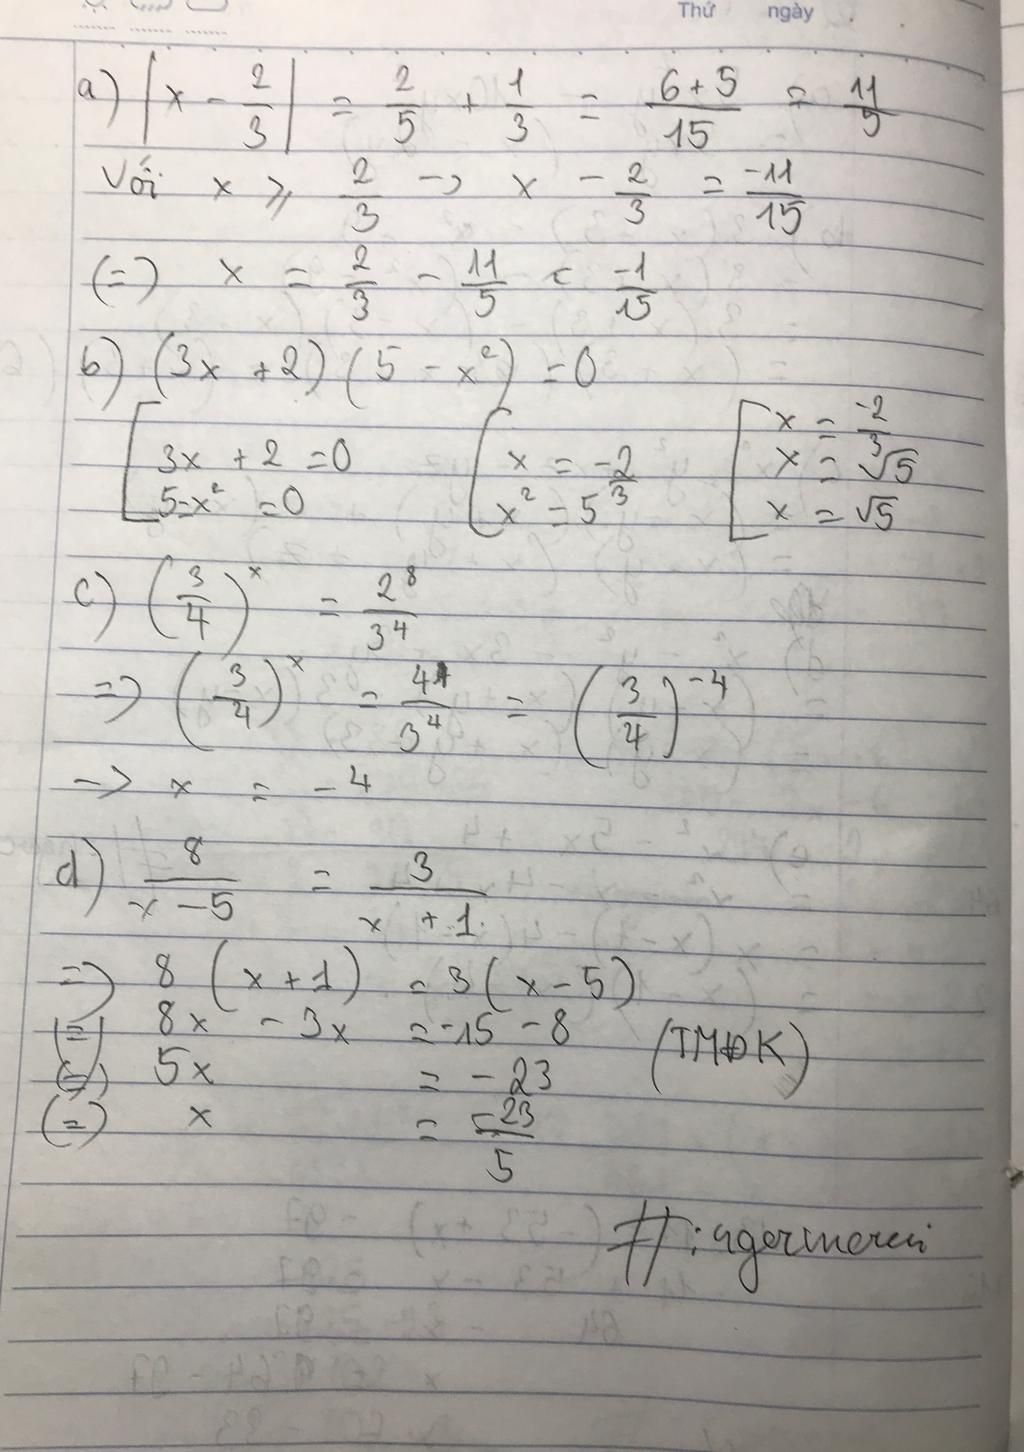 Thứ ngày
a) |x - 2/3| = 2/5 + 1/3 = (6+5)/15 = 11/5
Với x ⩾ 2/3 -> x - 2/3 = -11/15
(=) x = 2/3 - 11/5 = -1/15
b) (3x + 2)(5 - x²) = 0
[3x + 2 = 0 [x = -2/3 [x = -2/3
5-x² = 0 x² = 5 x = √5
x = √5
c) (3/4)^x = 2^8/3^4
=> (3/4)^x = 4^4/3^4 = (3/4)^-4
-> x = -4
d) 8/(x-5) = 3/(x+1)
=> 8(x+1) = 3(x-5)
(=) 8x - 3x = -15 - 8 (TMĐK)
(=) 5x = -23
(=) x = -23/5